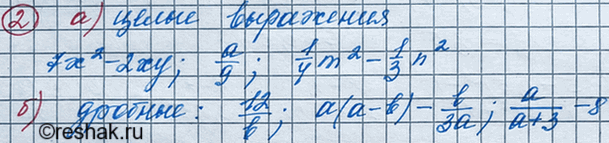 ② а) целые выражения
7x² - 2xy; a/9; 1/4 m² - 1/3 n²
б) дробные: 12/b; a(a-b) - b/3a; a/a+3 - 8
©reshak.ru